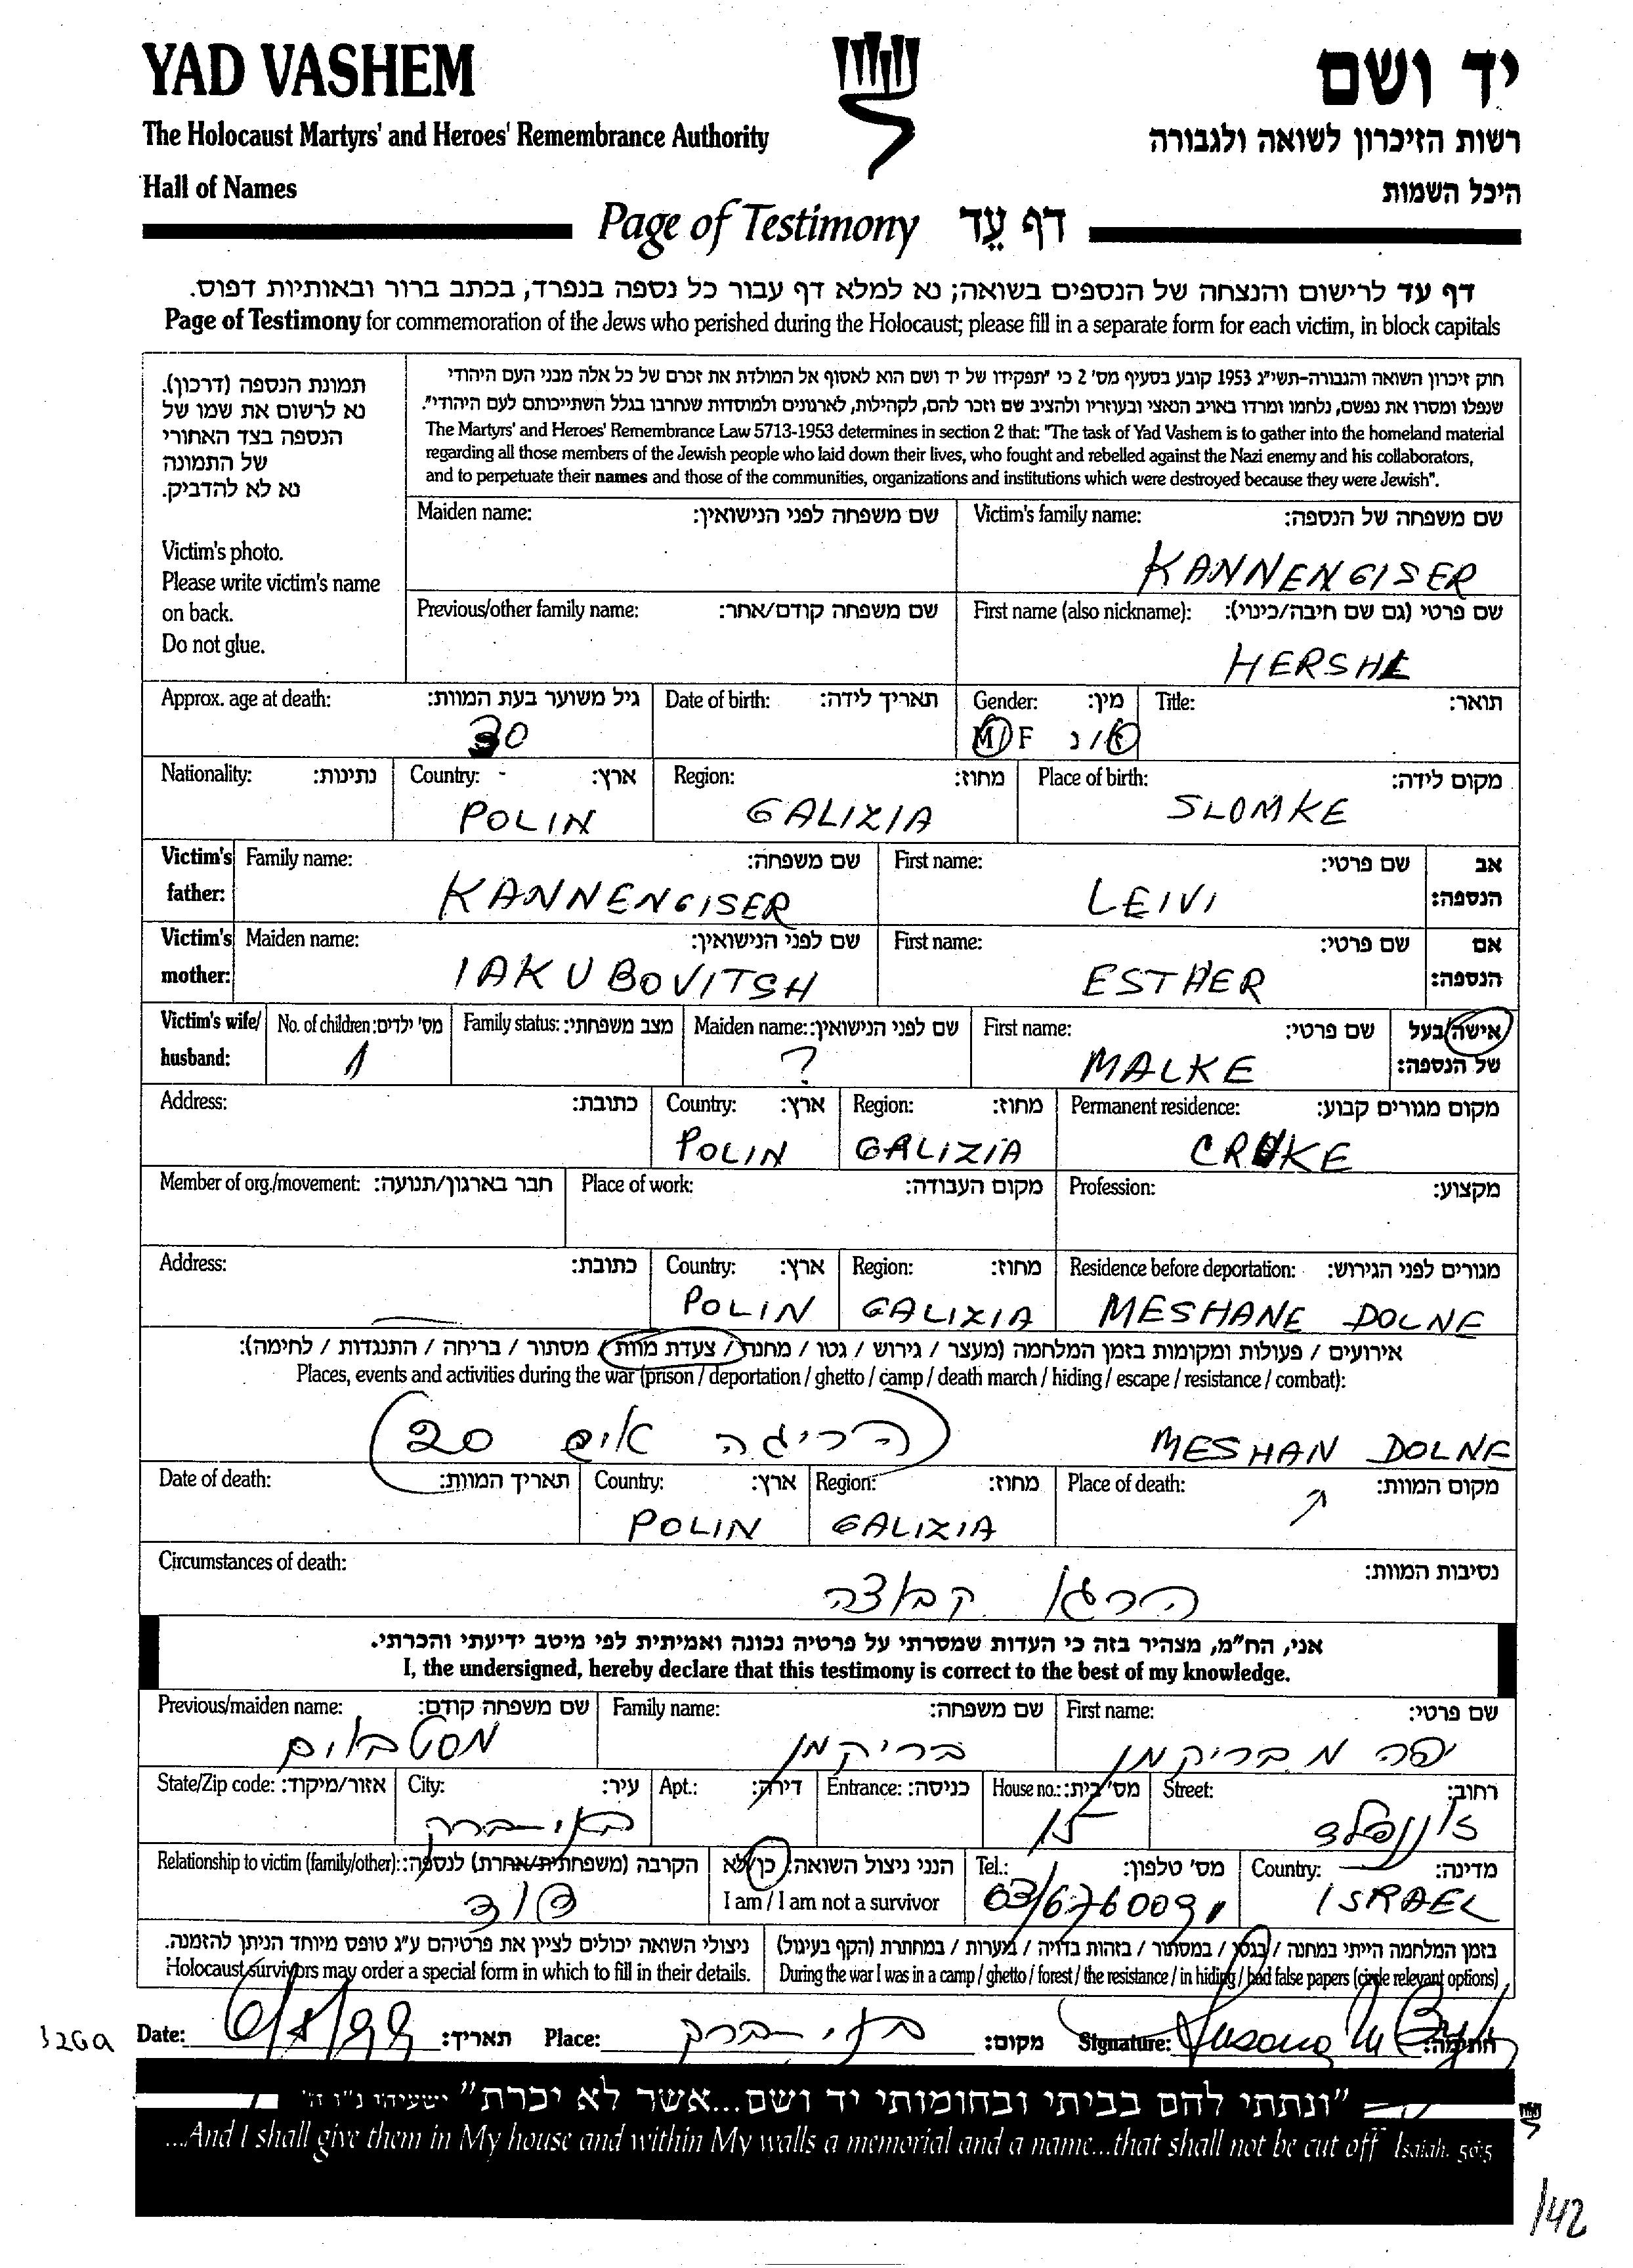 YAD VASHEM
יד ושם
The Holocaust Martyrs' and Heroes' Remembrance Authority
רשות הזיכרון לשואה ולגבורה
Hall of Names
היכל השמות
Page of Testimony דף עֵד
דף עד לרישום והנצחה של הנספים בשואה; נא למלא דף עבור כל נספה בנפרד, בכתב ברור ובאותיות דפוס.
Page of Testimony for commemoration of the Jews who perished during the Holocaust; please fill in a separate form for each victim, in block capitals
תמונת הנספה (דרכון).
נא לרשום את שמו של
הנספה בצד האחורי
של התמונה
נא לא להדביק.
Victim's photo.
Please write victim's name
on back.
Do not glue.
חוק זיכרון השואה והגבורה-תשי"ג 1953 קובע בסעיף מס' 2 כי "תפקידו של יד ושם הוא לאסוף אל המולדת את זכרם של כל אלה מבני העם היהודי
שנפלו ומסרו את נפשם, נלחמו ומרדו באויב הנאצי ובעוזריו ולהציב שם וזכר להם, לקהילות, לארגונים ולמוסדות שנחרבו בגלל השתייכותם לעם היהודי".
The Martyrs' and Heroes' Remembrance Law 5713-1953 determines in section 2 that: "The task of Yad Vashem is to gather into the homeland material
regarding all those members of the Jewish people who laid down their lives, who fought and rebelled against the Nazi enemy and his collaborators,
and to perpetuate their names and those of the communities, organizations and institutions which were destroyed because they were Jewish".
Maiden name: שם משפחה לפני הנישואין: Victim's family name: שם משפחה של הנספה:
KANNENGISER
Previous/other family name: שם משפחה קודם/אחר: First name (also nickname): שם פרטי (גם שם חיבה/כינוי):
HERSHE
Approx. age at death: גיל משוער בעת המוות: Date of birth: תאריך לידה: Gender: מין: Title: תואר:
30 M/F ז/נ
Nationality: נתינות: Country: ארץ: Region: מחוז: Place of birth: מקום לידה:
POLIN GALIZIA SLOMKE
Victim's father: Family name: שם משפחה: First name: שם פרטי: אב הנספה:
KANNENGISER LEIVI
Victim's mother: Maiden name: שם לפני הנישואין: First name: שם פרטי: אם הנספה:
IAKUBOVITSH ESTHER
Victim's wife/ husband: No. of children: מס' ילדים: Family status: מצב משפחתי: Maiden name: שם לפני הנישואין: First name: שם פרטי: אישה/בעל של הנספה:
1 ? MALKE
Address: כתובת: Country: ארץ: Region: מחוז: Permanent residence: מקום מגורים קבוע:
POLIN GALIZIA
Member of org./movement: חבר בארגון/תנועה: Place of work: מקום העבודה: Profession: מקצוע:
Address: כתובת: Country: ארץ: Region: מחוז: Residence before deportation: מגורים לפני הגירוש:
POLIN GALIZIA MESHANE DOLNE
אירועים / פעולות ומקומות בזמן המלחמה (מעצר / גירוש / גטו / מחנה / צעדת מוות / מסתור / בריחה / התנגדות / לחימה):
Places, events and activities during the war (prison / deportation / ghetto / camp / death march / hiding / escape / resistance / combat):
MESHAN DOLNE
Date of death: תאריך המוות: Country: ארץ: Region: מחוז: Place of death: מקום המוות:
POLIN GALIZIA
Circumstances of death: נסיבות המוות:
קבוצה
אני, הח"מ, מצהיר בזה כי העדות שמסרתי על פרטיה נכונה ואמיתית לפי מיטב ידיעתי והכרתי.
I, the undersigned, hereby declare that this testimony is correct to the best of my knowledge.
Previous/maiden name: שם משפחה קודם: Family name: שם משפחה: First name: שם פרטי:
מסטבוים בריקמן יפה מ בריקמן
State/Zip code: אזור/מיקוד: City: עיר: Apt.: דירה: Entrance: כניסה: House no.: מס' בית: Street: רחוב:
בני-ברק 15 זוננפלד
Relationship to victim (family/other): הקרבה (משפחתית/אחרת) לנספה: הנני ניצול השואה: כן/לא Tel.: מס' טלפון: Country: מדינה:
דוד I am / I am not a survivor 03/6760091 ISRAEL
ניצולי השואה יכולים לציין את פרטיהם ע"ג טופס מיוחד הניתן להזמנה.
Holocaust survivors may order a special form in which to fill in their details.
בזמן המלחמה הייתי במחנה / בגטו / במסתור / בזהות בדויה / ביערות / במחתרת (הקף בעיגול)
During the war I was in a camp / ghetto / forest / the resistance / in hiding / had false papers (circle relevant options)
Date: תאריך: Place: בני-ברק מקום: Signature: חתימה:
"ונתתי להם בביתי ובחומותי יד ושם...אשר לא יכרת" ישעיהו נ"ו ה'
...And I shall give them in My house and within My walls a memorial and a name...that shall not be cut off Isaiah. 56:5
/42